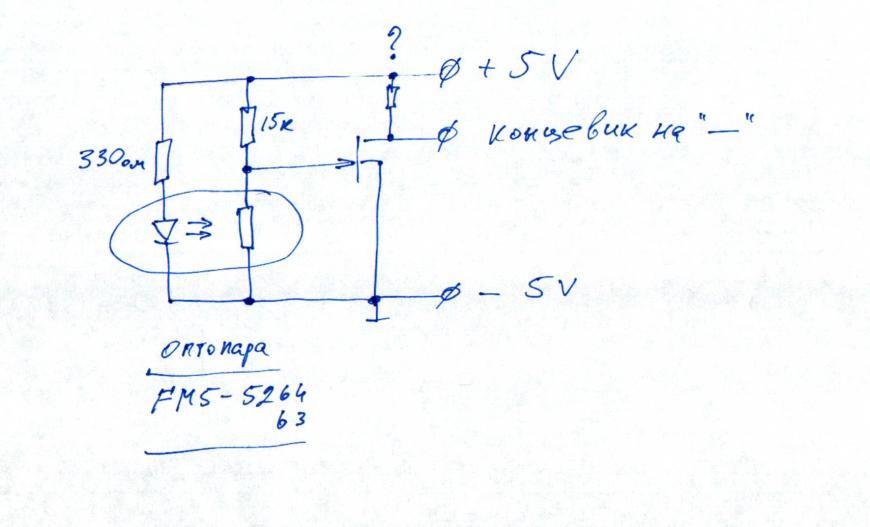 ?
ø + 5V
15к
ø концевик на "—"
330ом
ø — 5V
Оптопара
FM5-5264
63